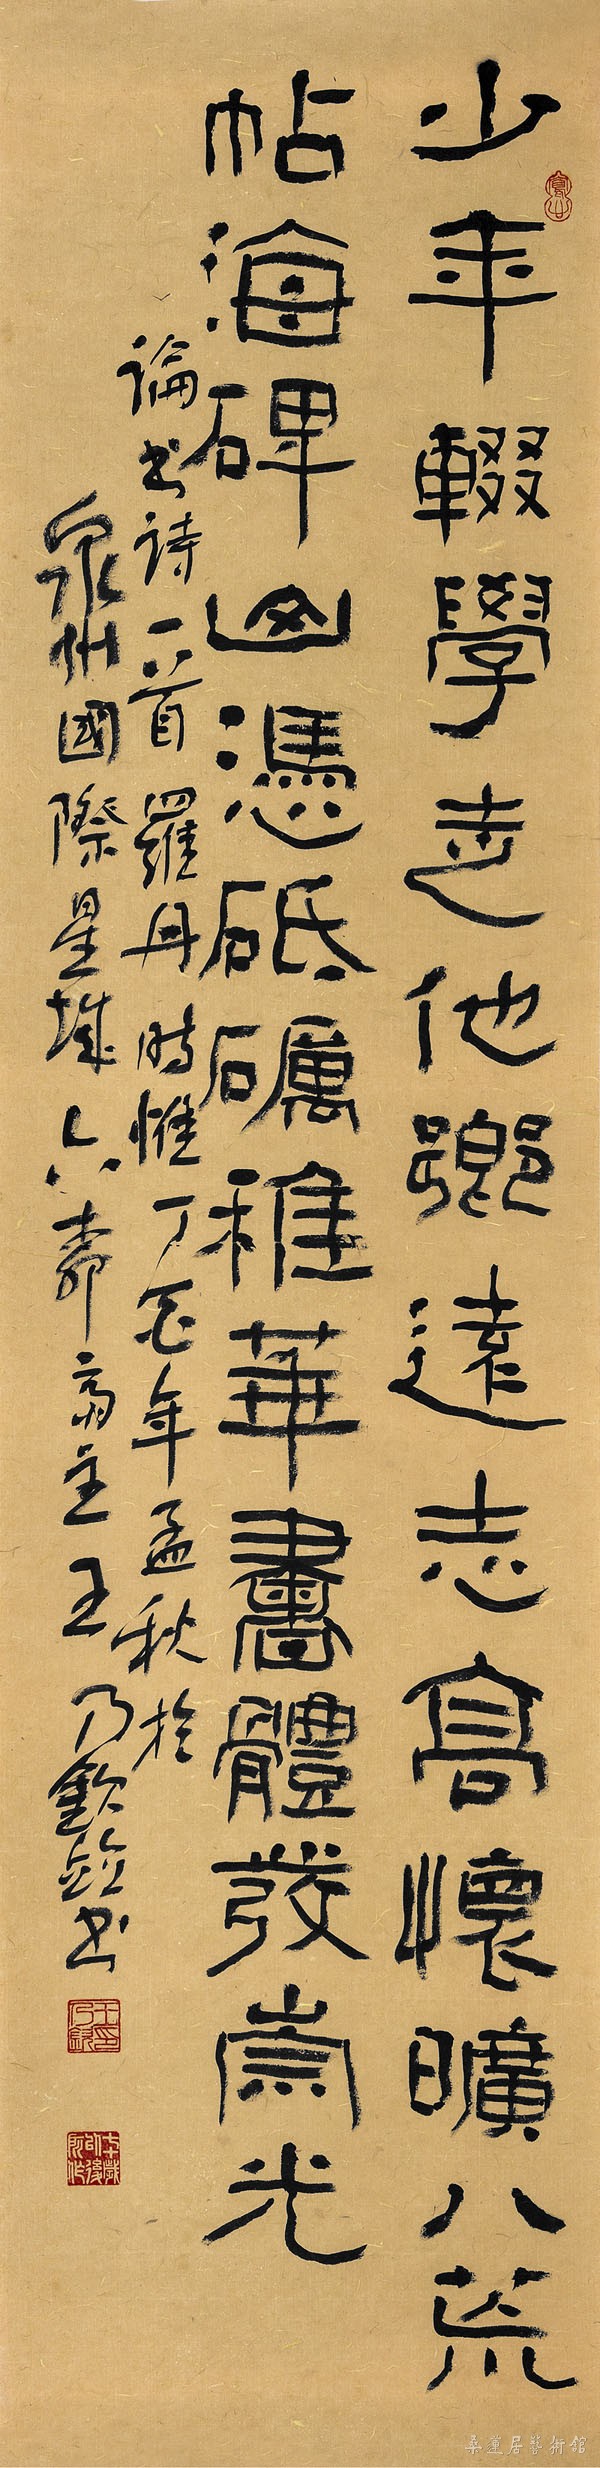 少年輟學走他鄉遠志高懷曠八荒
帖海碑山憑砥礪稚華書體發崇光
論書詩一首羅丹時惟丁酉年孟秋於
泉州國際星城六齋主王乃欽並書
桑蓮居藝術館